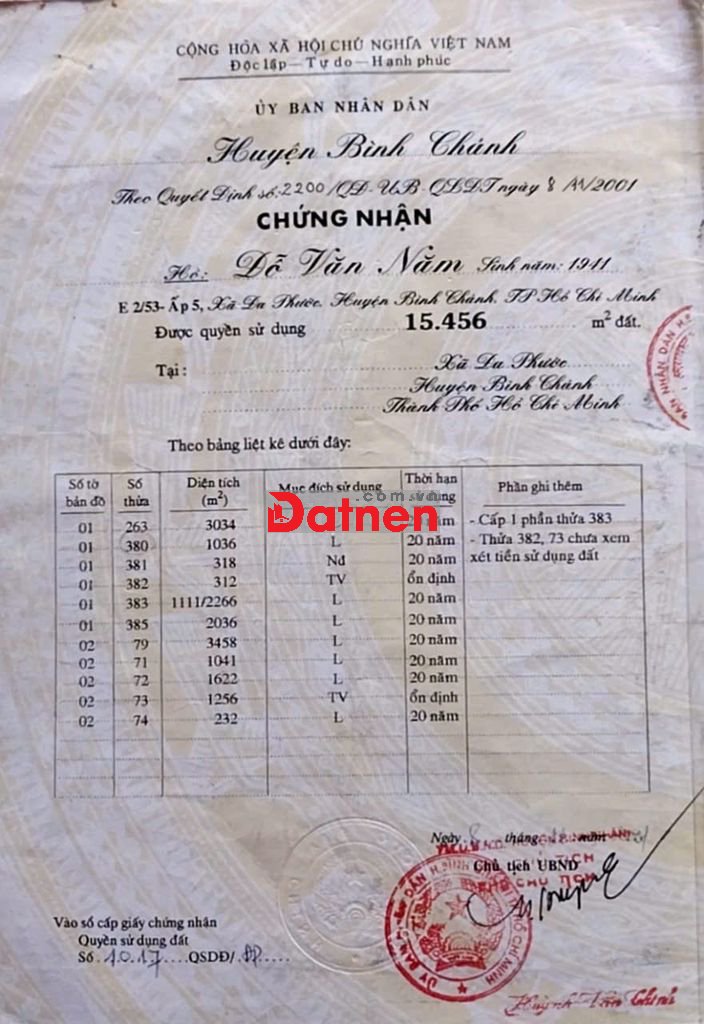 CỘNG HÒA XÃ HỘI CHỦ NGHĨA VIỆT NAM
Độc lập - Tự do - Hạnh phúc
ỦY BAN NHÂN DÂN
Huyện Bình Chánh
Theo Quyết Định số: 2200/QĐ-UB-QLĐT ngày 8 /11/2001
CHỨNG NHẬN
Hộ: Đỗ Văn Năm Sinh năm: 1941
E 2/53- Ấp 5, Xã Đa Phước, Huyện Bình Chánh, TP Hồ Chí Minh
Được quyền sử dụng 15.456 m² đất.
Tại: Xã Đa Phước
Huyện Bình Chánh
Thành Phố Hồ Chí Minh
Theo bảng liệt kê dưới đây:
Số tờ bản đồ Số thửa Diện tích (m²) Mục đích sử dụng Thời hạn dụng Phần ghi thêm
.com.vn
Datnen
01 263 3034 20 năm - Cấp 1 phần thửa 383
01 380 1036 L 20 năm - Thửa 382, 73 chưa xem
01 381 318 Nd 20 năm xét tiền sử dụng đất
01 382 312 TV ổn định
01 383 1111/2266 L 20 năm
01 385 2036 L 20 năm
02 79 3458 L 20 năm
02 71 1041 L 20 năm
02 72 1622 L 20 năm
02 73 1256 TV ổn định
02 74 232 L 20 năm
Ngày 8 tháng năm
Chủ tịch UBND
Vào sổ cấp giấy chứng nhận
Quyền sử dụng đất
Số 1017 QSDĐ/
Huỳnh Văn